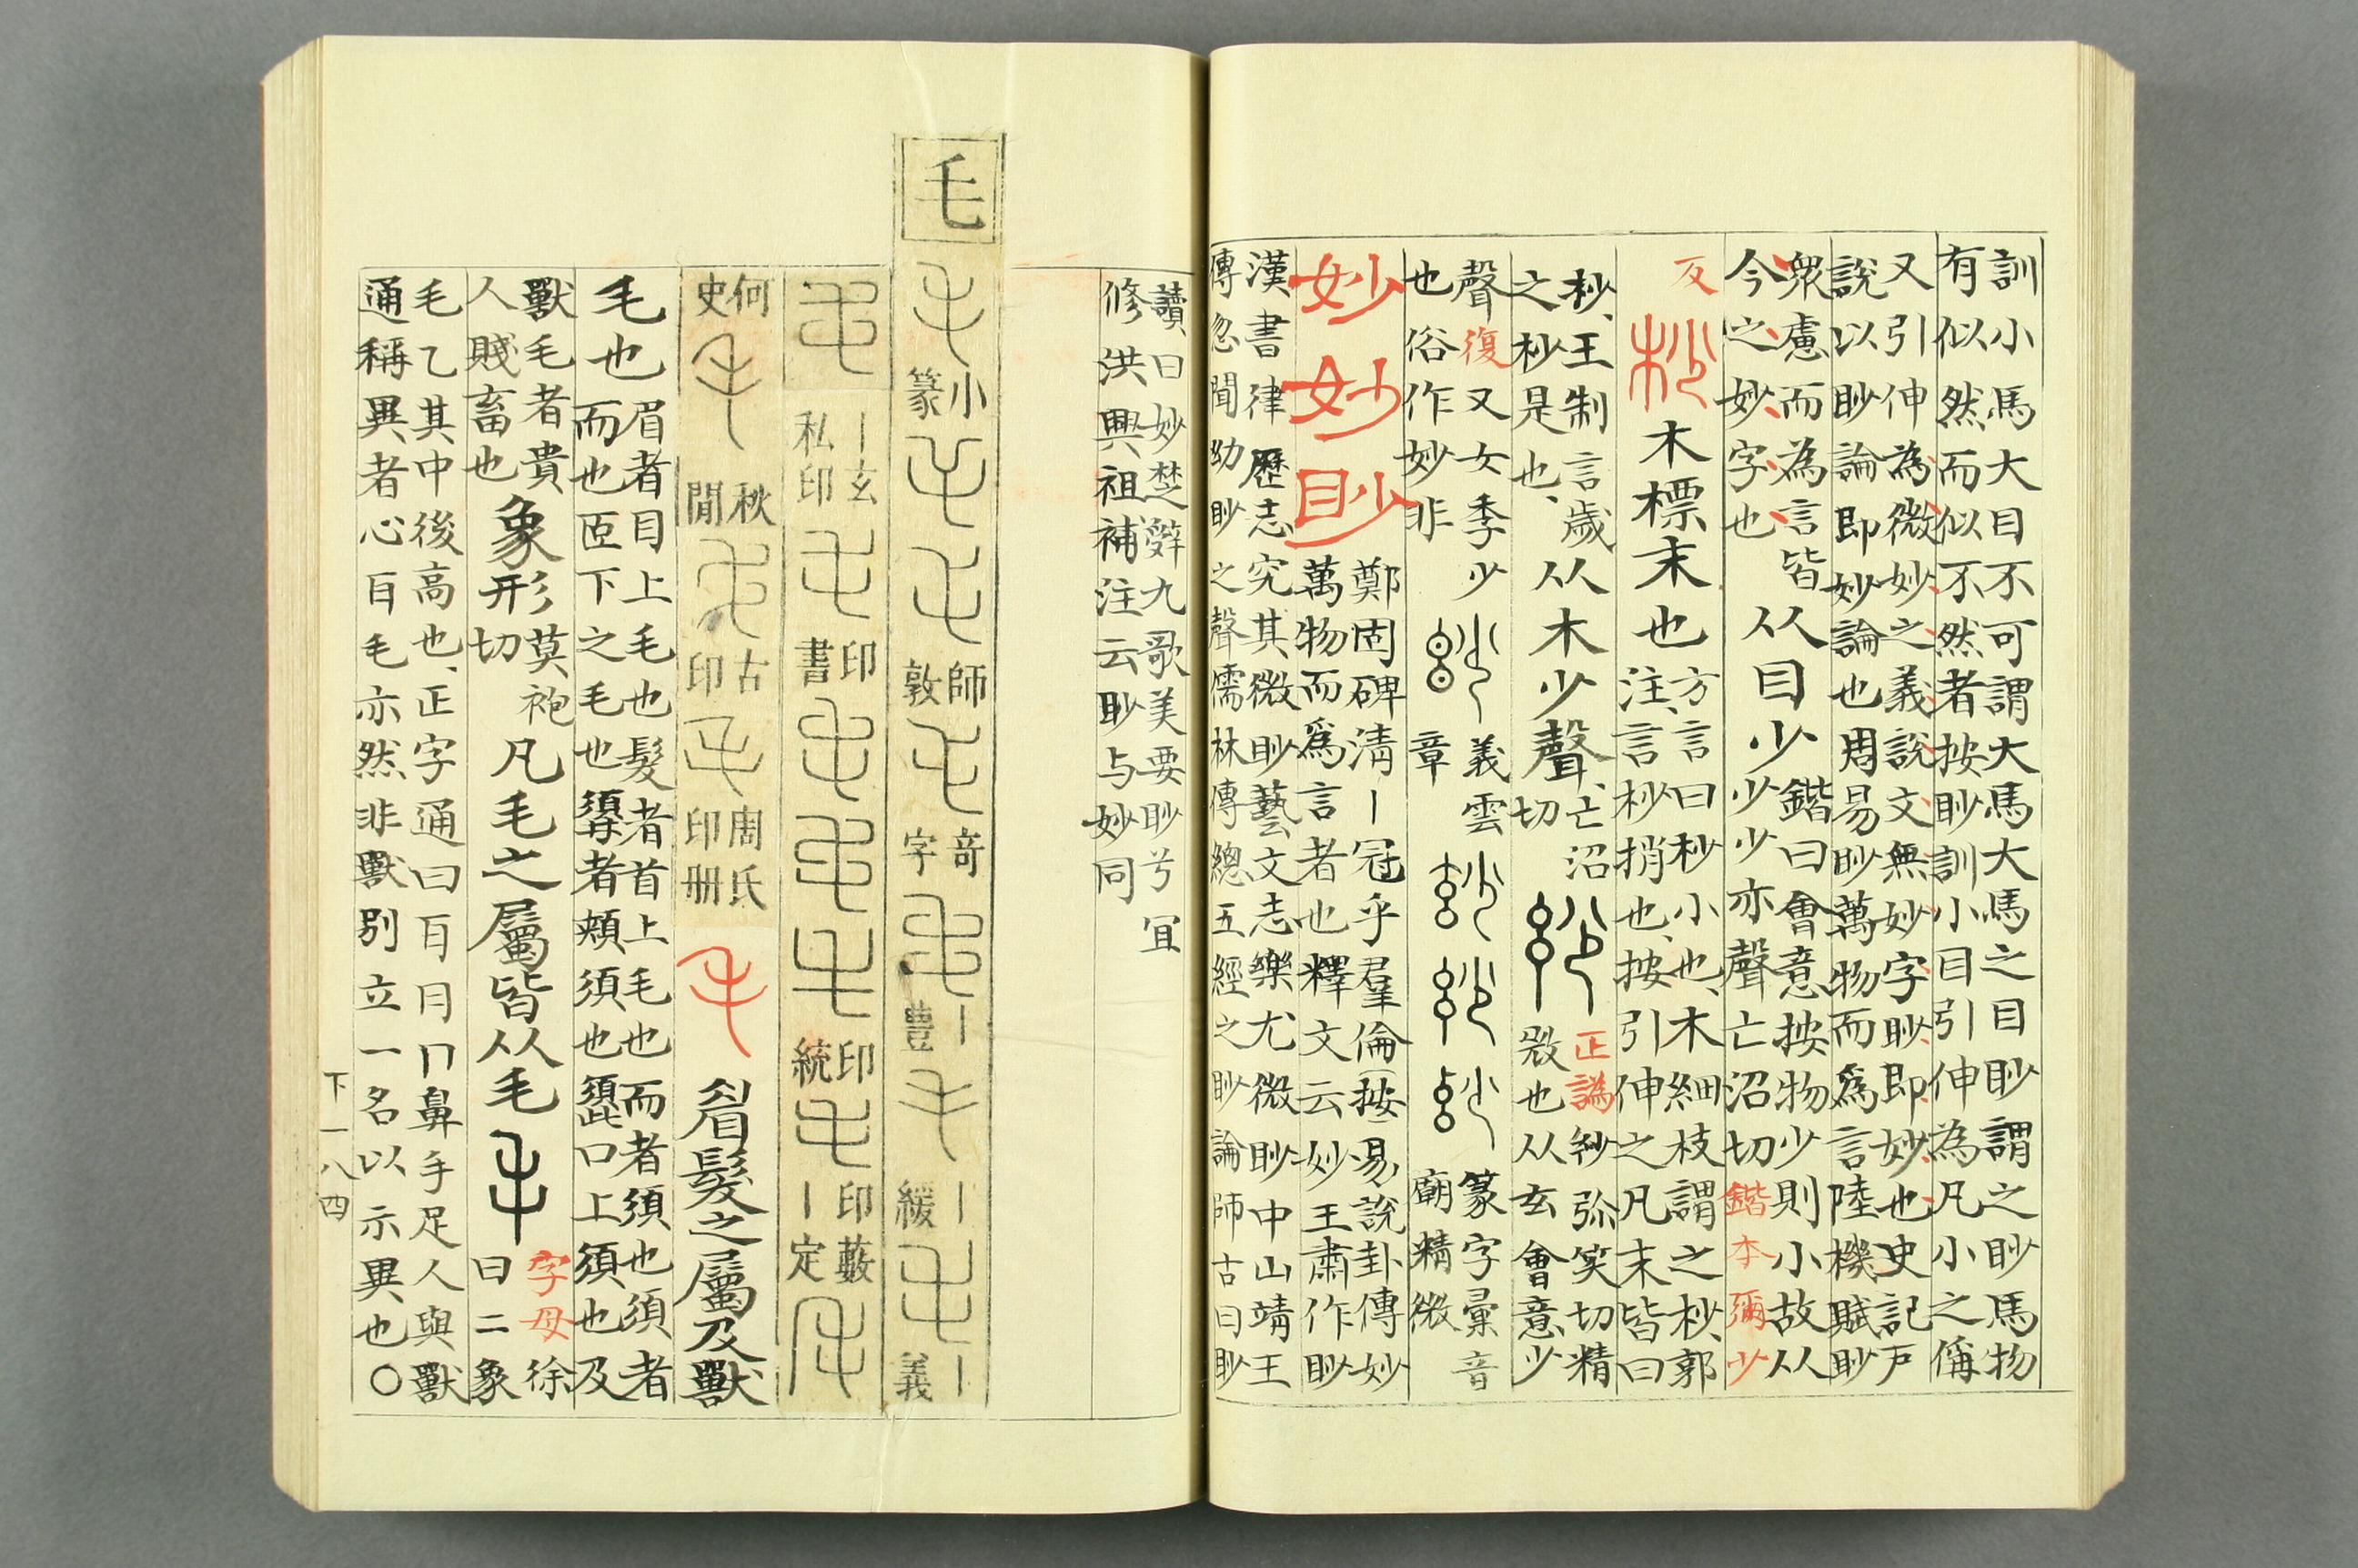 訓小馬大目不可謂大馬大馬之目眇謂之眇馬物
有似然而似不然者按眇訓小目引伸為凡小之偁
又引伸為微妙之義說文無妙字眇即妙也史記戶
說以眇論即妙論也周易眇萬物而爲言陸機賦眇
眾慮而為言皆
今之妙字也
从目少
鍇曰會意按物少則小故从
少少亦聲亡沼切鍇本彌少
反
杪
木標末也
方言曰杪小也木細枝謂之杪郭
注言杪捎也按引伸之凡末皆曰
杪王制言歲
之杪是也
从木少聲
亡沼
切
正譌紗弥笑切精
也从玄會意少
聲復又女季少
也俗作妙非
義雲
章
篆字彙音
廟精微
妙妙眇
鄭固碑清丨冠乎羣倫按易說卦傳妙
萬物而爲言者也釋文云妙王肅作眇
漢書律歷志究其微眇藝文志樂尤微眇中山靖王
傳忽聞幼眇之聲儒林傳總五經之眇論師古曰眇
讀曰妙楚辭九歌美要眇兮宜
修洪興祖補注云眇与妙同
毛
小篆
師敦
奇字
丨豐
丨緩
丨義
丨玄私印
印書
印統
印藪丨定
何史
秋閒
古印
周氏印册
眉髮之屬及獸
毛也
眉者目上毛也髮者首上毛也而者須也須者
而也臣下之毛也䫇者頰須也頾口上須也及
獸毛者貴
人賤畜也
象形
莫袍
切
凡毛之屬皆从毛
字母徐
曰二象
毛乙其中後高也正字通曰百月冂鼻手足人與獸
通稱異者心百毛亦然非獸別立一名以示異也〇
下一八四